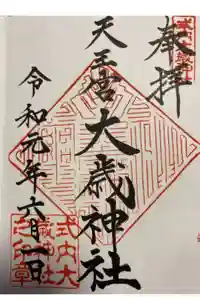 奉拝
天王宮大歳神社
令和元年六月一日
式内大歳神社之印章